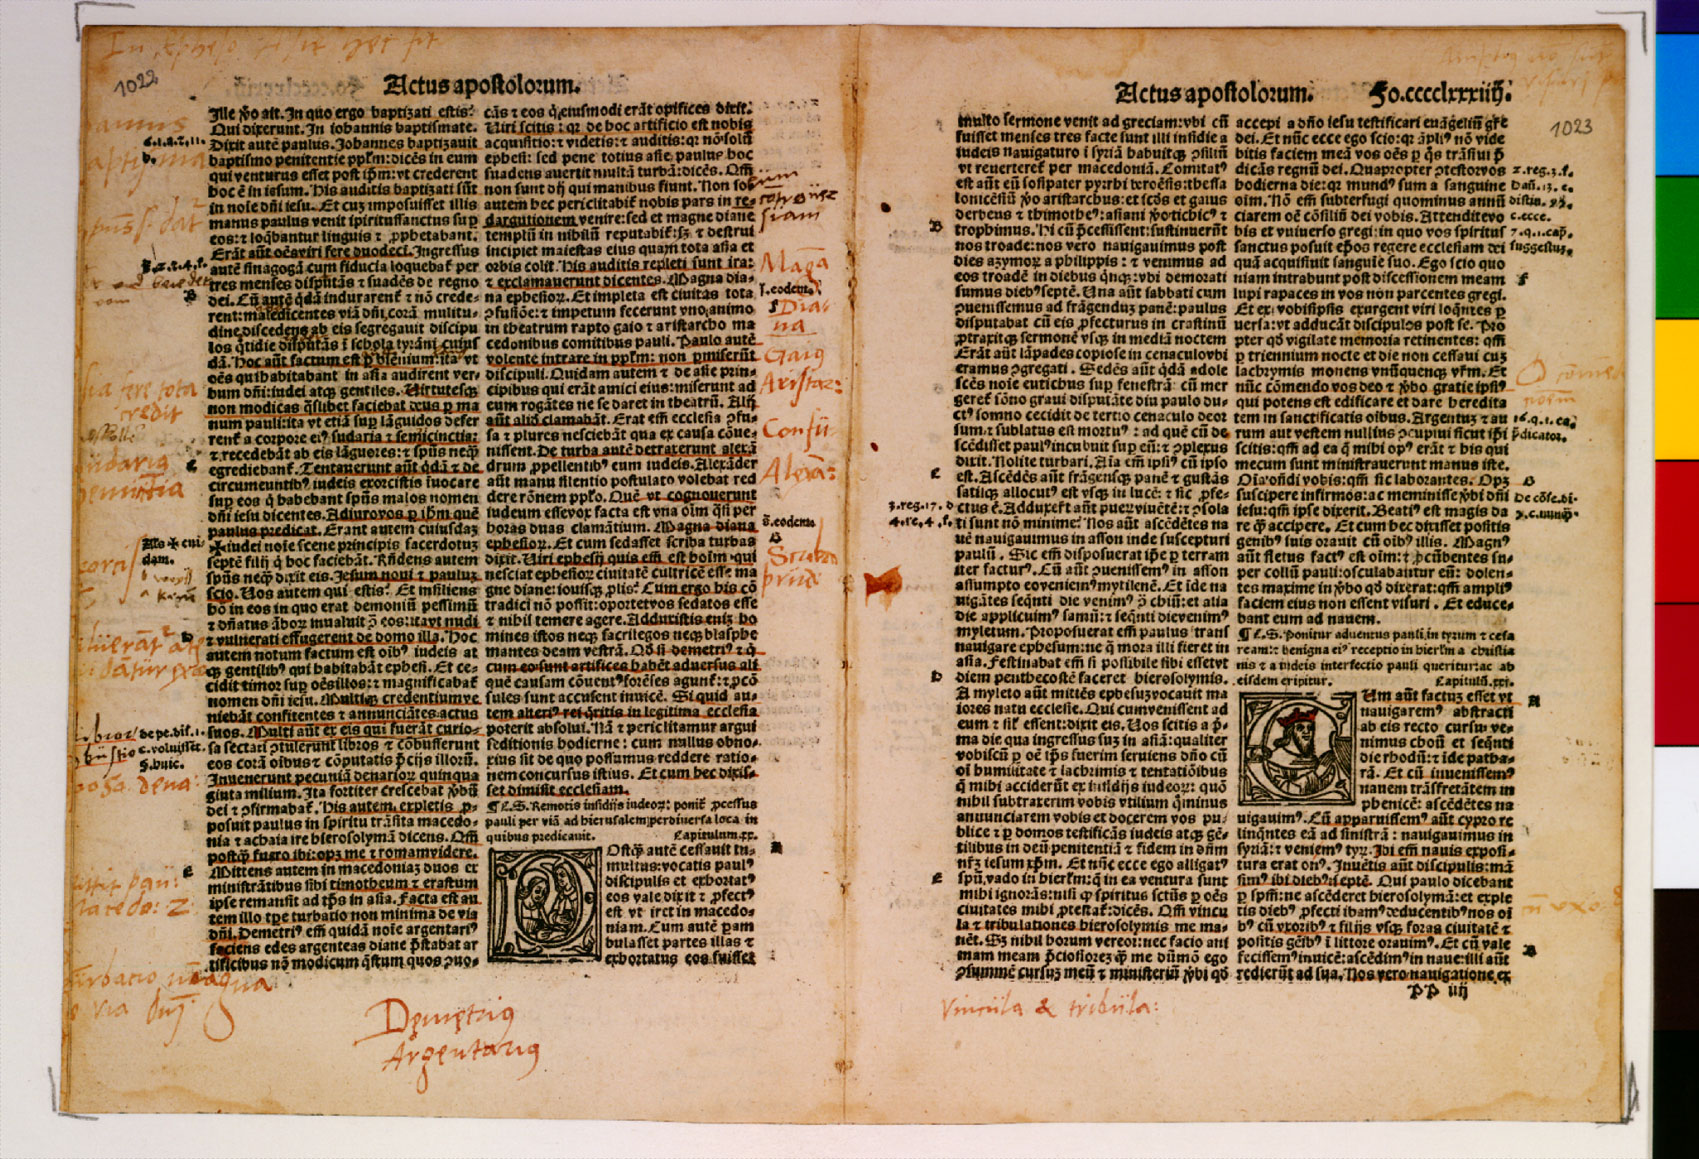 1022
Actus apostolorum.
Ille ꝟo ait. In quo ergo baptizati estis:
Qui dixerunt. In iohannis baptismate.
Dixit autē paulus. Johannes baptizauit
baptismo penitentie pplm: dicēs in eum
qui venturus esset post ip̄m: vt crederent
hoc ē in iesum. His auditis baptizati sūt
in noīe dn̄i iesu. Et cuꝫ imposuisset illis
manus paulus venit spiritussanctus sup
eos: ⁊ loq̄bantur linguis ⁊ ꝓphetabant.
Erāt aūt oēs viri fere duodecī. Ingressus
autē sinagogā cum fiducia loquebat᷑ per
tres menses disputās ⁊ suadēs de regno
dei. Cū autē q̇dā indurarent᷑ ⁊ nō crede-
rent: maledicentes viā dn̄i, corā multitu-
dine, discedens ab eis segregauit discipu
los q̄tidie disputās ī schola tyrāni cuius
dā. Hoc aūt factum est ꝑ biēnium: ita vt
oēs qui habitabant in asia audirent ver-
bum dn̄i: iudei atqꝫ gentiles. Virtutesqꝫ
non modicas q̄slibet faciebat deus ꝑ ma
num pauli: ita vt etiā sup lāguidos defer
rent᷑ a corpore eiꝰ sudaria ⁊ semicinctia:
⁊ recedebāt ab eis lāguores: ⁊ spūs neq̄ꝫ
egrediebant᷑. Tentauerunt aūt q̇dā ⁊ de
circumeuntibꝰ iudeis exorcistis īuocare
sup eos q̇ habebant spūs malos nomen
dn̄i iesu dicentes. Adiuro vos ꝑ ih̄m quē
paulus predicat. Erant autem cuiusdaꝫ
iudei noīe scene principis sacerdotuꝫ
septē filij q̇ hoc faciebāt. Rn̄dens autem
spūs neqꝫ dixit eis. Jesum noui ⁊ pauluꝫ
scio. Vos autem qui estis: Et insiliens
hō in eos in quo erat demoniū pessimū
⁊ dn̄atus ābor mualuit ꝯ eos: ita vt nudi
⁊ vulnerati effugerent de domo illa. Hoc
autem notum factum est oībꝰ iudeis at
qꝫ gentilibꝰ qui habitabāt ephesi. Et ce-
cidit timor sup oēs illos: ⁊ magnificabat᷑
nomen dn̄i iesu. Multiqꝫ credentium ve
niebāt confitentes ⁊ annunciātes actus
suos. Multi aūt ex eis qui fuerāt curio-
sa sectati ꝯtulerunt libros ⁊ cōbusserunt
eos corā oībus ⁊ cōputatis p̄cijs illorū.
Inuenerunt pecuniā denarioꝝ quinqua
ginta milium. Ita fortiter crescebat ꝟbū
dei ⁊ ꝯfirmabat᷑. His autem expletis ꝓ-
posuit paulus in spiritu trāsita macedo-
nia ⁊ achaia ire hierosolymā dicens. Qm̄
postq̄ fuero ibi: opꝫ me ⁊ romam videre.
Mittens autem in macedoniaꝫ duos ex
ministrātibus sibi timotheum ⁊ erastum
ipse remansit ad tp̄s in asia. Facta est au
tem illo tp̄e turbatio non minima de via
dn̄i. Demetriꝰ em̄ quidā noīe argentariꝰ
faciens edes argenteas diane p̄stabat ar
tificibus nō modicum q̄stum quos ꝯuo-
cās ⁊ eos q̇ eiusmodi erāt opifices dixit.
Viri scitis: qꝛ de hoc artificio est nobis
acquisitio: ⁊ videtis: ⁊ auditis: qꝛ nō solū
ephesi: sed pene totius asie paulus hoc
suadens auertit multā turbā: dicēs. Qm̄
non sunt dij qui manibus fiunt. Non solū
autem hec periclitabit᷑ nobis pars in re-
dargutionem venire: sed et magne diane
templū in nihilū reputabit᷑: sꝫ ⁊ destrui
incipiet maiestas eius quam tota asia et
orbis colit. His auditis repleti sunt ira:
⁊ exclamauerunt dicentes. Magna dia-
na ephesioꝝ. Et impleta est ciuitas tota
ꝯfusiōe: ⁊ impetum fecerunt vno animo
in theatrum rapto gaio ⁊ aristarcho ma
cedonibus comitibus pauli. Paulo autē
volente intrare in pplm: non ꝑmiserūt
discipuli. Quidam autem ⁊ de asie prin-
cipibus qui erāt amici eius: miserunt ad
eum rogātes ne se daret in theatrū. Alij
aūt aliō clamabāt. Erat em̄ ecclesia ꝯfu-
sa ⁊ plures nesciebāt qua ex causa cōue-
nissent. De turba autē detraxerunt alexā
drum ꝓpellentibꝰ eum iudeis. Alexāder
aūt manu silentio postulato volebat red
dere rōnem pplo. Quē vt cognouerunt
iudeum esse vox facta est vna oīm q̄si per
horas duas clamātium. Magna diana
ephesioꝝ. Et cum sedasset scriba turbas
dixit. Viri ephesij quis em̄ est hoīm qui
nesciat ephesioꝝ ciuitatē cultricē esse ma
gne diane: iouisqꝫ ꝓlis: Cum ergo his cō
tradici nō possit: oportet vos sedatos esse
⁊ nihil temere agere. Adduxistis eniꝫ ho
mines istos neqꝫ sacrilegos neqꝫ blasphe
mantes deam vestrā. Qō si demetriꝰ ⁊ q̇
cum eo sunt artifices habēt aduersus ali
quē causam cōuentꝰ forēses agunt᷑: ⁊ ꝓcō
sules sunt accusent inuicē. Si quid au-
tem alteriꝰ rei q̄ritis in legitima ecclesia
poterit absolui. Nā ⁊ periclitamur argui
seditionis hodierne: cum nullus obno-
xius sit de quo possumus reddere ratio-
nem concursus istius. Et cum hec dixis-
set dimisit ecclesiam.
¶ C.S. Remotis insidijs iudeoꝝ: ponit᷑ ꝓcessus
pauli per viā ad hierusalem: per diuersa loca in
quibus predicauit. Capitulum. xx.
POstq̄ autē cessauit tu-
multus: vocatis paulꝰ
discipulis et exhortatꝰ
eos vale dixit ⁊ ꝓfectꝰ
est vt iret in macedo-
niam. Cum autē ꝑam
bulasset partes illas ⁊
exhortatus eos fuisset
Maga
Dia-
na
Gaiꝰ
Aristar:
Confu-
Alexā:
Demetriꝰ
Argentariꝰ
Actus apostolorum. Fo. cccclxxxiiij.
1023
multo sermone venit ad greciam: vbi cū
fuisset menses tres facte sunt illi insidie a
iudeis nauigaturo ī syriā habuitqꝫ ꝯsiliū
vt reuerteret᷑ per macedoniā. Comitatꝰ
est aūt eū sosipater pyrrhi beroēsis: thessa
lonicēsiū ꝟo aristarchus: et secūs et gaius
derbeus ⁊ thimotheꝰ: asiani ꝟo tichicꝰ ⁊
trophimus. Hi cū p̄cessissent: sustinuerūt
nos troade: nos vero nauigauimus post
dies azymoꝝ a philippis: ⁊ venimus ad
eos troadē in diebus q̇nqꝫ: vbi demorati
sumus diebꝰ septē. Una aūt sabbati cum
ꝯuenissemus ad frāgenduꝫ panē: paulus
disputabat cū eis ꝓfecturus in crastinū
ꝓtraxitqꝫ sermonē vsqꝫ in mediā noctem
Erāt aūt lāpades copiose in cenaculo vbi
eramus ꝯgregati. Sedēs aūt q̇dā adole
scēs noīe eutichus sup fenestrā: cū mer
geret᷑ sōno graui disputāte diu paulo du-
ctꝰ somno cecidit de tertio cenaculo deor
sum: ⁊ sublatus est mortuꝰ: ad quē cū de
scēdisset paulꝰ incubuit sup eū: ⁊ ꝯplexus
dixit. Nolite turbari. Aīa em̄ ipsiꝰ cū ipso
est. Ascēdēs aūt frāgēsqꝫ panē ⁊ gustās
satisqꝫ allocutꝰ est vsqꝫ in lucē: ⁊ sic ꝓfe-
ctus ē. Adduxer̄t aūt puerū viuētē: ⁊ ꝯsola
ti sunt nō minime. Nos aūt ascēdētes na
uē nauigauimus in asson inde suscepturi
paulū. Sic em̄ disposuerat ip̄e ꝑ terram
iter facturꝰ. Cū aūt ꝯuenissemꝰ in asson
assumpto eo venimꝰ mytilenē. Et īde na
uigātes seq̄nti die venimꝰ ꝯ chiū: et alia
die applicuimꝰ samū: ⁊ seq̄nti die venimꝰ
myletum. Proposuerat em̄ paulus trans
nauigare ephesum: ne q̄ mora illi fieret in
asia. Festinabat em̄ si possibile sibi esset vt
diem penthecostē faceret hierosolymis.
A myleto aūt mittēs ephesuꝫ vocauit ma
iores natu ecclesie. Qui cum venissent ad
eum ⁊ sil᷑ essent: dixit eis. Vos scitis a p̄-
ma die qua ingressus suꝫ in asiā: qualiter
vobiscū ꝑ oē tp̄s fuerim seruiens dn̄o cū
oī humilitate ⁊ lachrimis ⁊ tentatiōibus
q̄ mihi acciderūt ex insidijs iudeoꝝ: quō
nihil subtraxerim vobis vtilium q̇minus
annunciarem vobis et docerem vos pu-
blice ⁊ ꝑ domos testificās iudeis atqꝫ gē-
tilibus in deū penitentiā ⁊ fidem in dn̄m
nr̄ꝫ iesum xp̄m. Et nūc ecce ego alligatꝰ
spū, vado in hierl̄m: q̄ in ea ventura sunt
mihi ignorās: nisi qꝫ spiritus sctūs ꝑ oēs
ciuitates mihi ꝓtestat᷑: dicēs. Qm̄ vincu
la ⁊ tribulationes hierosolymis me ma-
nēt. Sꝫ nihil horum vereor: nec facio ani
mam meam p̄ciosiorez qꝫ me dūmō ego
ꝯsummē cursuꝫ meū ⁊ ministeriū ꝟbi qō
accepi a dn̄o iesu testificari euāgeliū gr̄e
dei. Et nūc ecce ego scio: qꝛ āpliꝰ nō vide
bitis faciem meā vos oēs ꝑ q̄s trāsiui p̄
dicās regnū dei. Quapropter ꝯtestor vos
hodierna die: qꝛ mundꝰ sum a sanguine
oīm. Nō em̄ subterfugi quominus annū
ciarem oē cōsiliū dei vobis. Attendite vo
bis et vniuerso gregi: in quo vos spiritus
sanctus posuit ep̄os regere ecclesiam dei
quā acquisiuit sanguīe suo. Ego scio quo
niam intrabunt post discessionem meam
lupi rapaces in vos non parcentes gregi.
Et ex vobisipsis exurgent viri loq̄ntes ꝑ
uersa: vt adducāt discipulos post se. Pro
pter qō vigilate memoria retinentes: qm̄
ꝑ triennium nocte et die non cessaui cuꝫ
lachrymis monens vnūquenqꝫ vr̄m. Et
nūc cōmendo vos deo ⁊ ꝟbo gratie ipsiꝰ
qui potens est edificare et dare heredita
tem in sanctificatis oībus. Argentuꝫ ⁊ au
rum aut vestem nullius ꝯcupiui sicut ip̄i
scitis: qm̄ ad ea q̄ mihi opꝰ erāt ⁊ his qui
mecum sunt ministrauerunt manus iste.
Oīa on̄di vobis: qm̄ sic laborantes. Opꝫ
suscipere infirmos: ac meminisse ꝟbi dn̄i
iesu: qm̄ ipse dixerit. Beatiꝰ est magis da
re q̄ accipere. Et cum hec dixisset positis
genibꝰ suis orauit cū oībꝰ illis. Magnꝰ
aūt fletus factꝰ est oīm: ⁊ ꝓcūbentes su-
per collū pauli: osculabantur eū: dolen-
tes maxime in ꝟbo qō dixerat: qm̄ ampliꝰ
faciem eius non essent visuri. Et educe-
bant eum ad nauem.
¶ C.S. Ponitur aduentus pauli in tyrum ⁊ cesa
ream: ⁊ benigna eiꝰ receptio in hierl̄m a christia
nis ⁊ a iudeis interfectio pauli queritur: ac ab
eisdem eripitur. Capitulū. xxi.
CUm aūt factuꝫ esset vt
nauigaremꝰ abstracti
ab eis recto cursu ve-
nimus choū et seq̄nti
die rhodū: ⁊ īde patha-
rā. Et cū inuenissemꝰ
nauem trāsfretātem in
phenicē: ascēdētes na
uigauimꝰ. Cū apparuissemꝰ aūt cypro re
linq̄ntes eā ad sinistrā: nauigauimus in
syriā: ⁊ veniemꝰ tyꝝ. Ibi em̄ nauis exposi-
tura erat onꝰ. Inuētis aūt discipulis: mā
simꝰ ibi diebꝰ septē. Qui paulo dicebant
ꝑ spm̄: ne ascēderet hierosolymā: et exple
tis diebꝰ ꝓfecti ibamꝰ deducentibꝰ nos oī
bꝰ cū vxoribꝰ ⁊ filijs vsqꝫ foras ciuitatē ⁊
positis gēibꝰ ī littore orauimꝰ. Et cū vale
fecissemꝰ inuicē: ascēdimꝰ in nauē: illi aūt
redierūt ad sua. Nos vero nauigatione ex
PP iiij
Vincula & tribula: